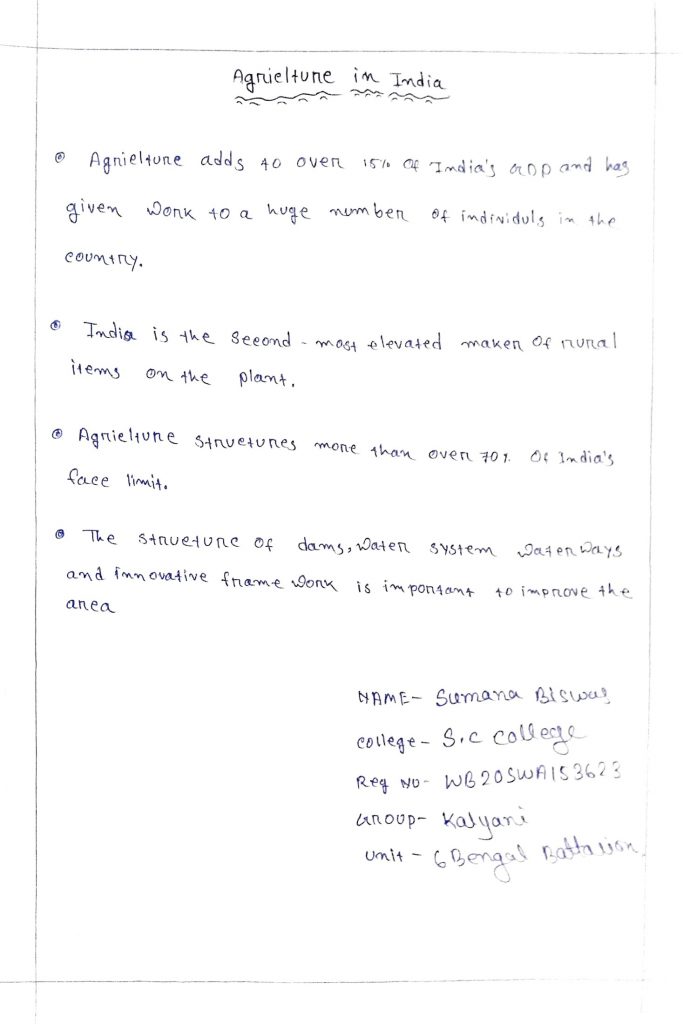 Agrielture in India
Agrielture adds to over 15% of India's GDP and has
given work to a huge number of individuls in the
country.
India is the second - most elevated maker of rural
items on the plant.
Agrielture structures more than over 70% of India's
face limit.
The structure of dams, water system water ways
and innovative frame work is important to improve the
area
NAME- Sumana Biswas
college - S.C college
Reg No- WB20SWA153623
Group- Kalyani
unit - 6 Bengal Battalion